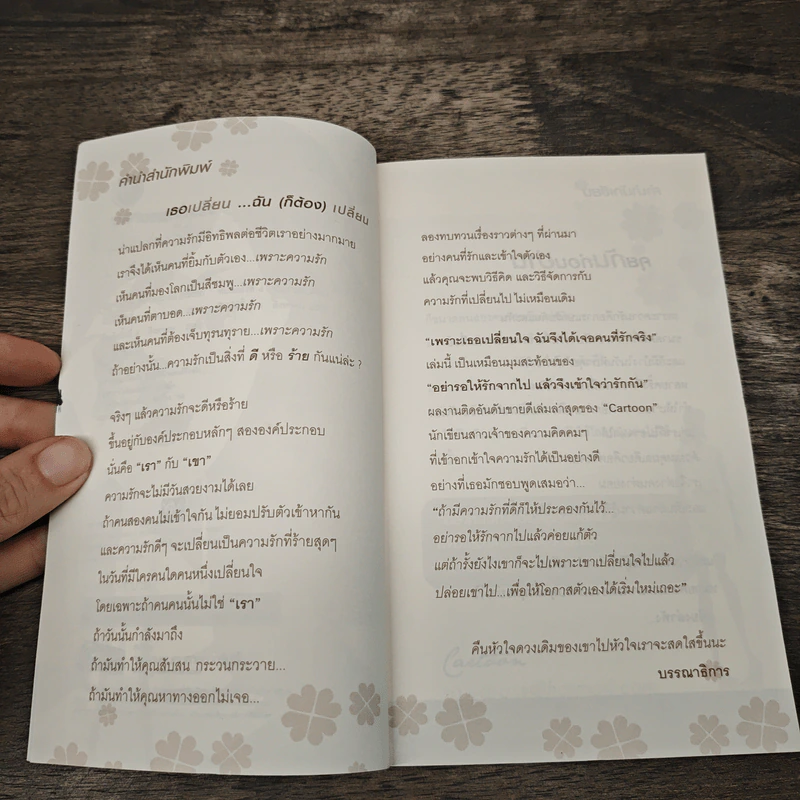 คำนำสำนักพิมพ์
เธอเปลี่ยน ...ฉัน (ก็ต้อง) เปลี่ยน
น่าแปลกที่ความรักมีอิทธิพลต่อชีวิตเราอย่างมากมาย
เราจึงได้เห็นคนที่ยิ้มกับตัวเอง...เพราะความรัก
เห็นคนที่มองโลกเป็นสีชมพู...เพราะความรัก
เห็นคนที่ตาบอด...เพราะความรัก
และเห็นคนที่ต้องเจ็บทุรนทุราย...เพราะความรัก
ถ้าอย่างนั้น...ความรักเป็นสิ่งที่ ดี หรือ ร้าย กันแน่ล่ะ ?
จริงๆ แล้วความรักจะดีหรือร้าย
ขึ้นอยู่กับองค์ประกอบหลักๆ สององค์ประกอบ
นั่นคือ “เรา” กับ “เขา”
ความรักจะไม่มีวันสวยงามได้เลย
ถ้าคนสองคนไม่เข้าใจกัน ไม่ยอมปรับตัวเข้าหากัน
และความรักดีๆ จะเปลี่ยนเป็นความรักที่ร้ายสุดๆ
ในวันที่มีใครคนใดคนหนึ่งเปลี่ยนใจ
โดยเฉพาะถ้าคนคนนั้นไม่ใช่ “เรา”
ถ้าวันนั้นกำลังมาถึง
ถ้ามันทำให้คุณสับสน กระวนกระวาย...
ถ้ามันทำให้คุณหาทางออกไม่เจอ...
ลองทบทวนเรื่องราวต่างๆ ที่ผ่านมา
อย่างคนที่รักและเข้าใจตัวเอง
แล้วคุณจะพบวิธีคิด และวิธีจัดการกับ
ความรักที่เปลี่ยนไป ไม่เหมือนเดิม
“เพราะเธอเปลี่ยนใจ ฉันจึงได้เจอคนที่รักจริง”
เล่มนี้ เป็นเหมือนมุมสะท้อนของ
“อย่ารอให้รักจากไป แล้วจึงเข้าใจว่ารักกัน”
ผลงานติดอันดับขายดีเล่มล่าสุดของ “Cartoon”
นักเขียนสาวเจ้าของความคิดคมๆ
ที่เข้าอกเข้าใจความรักได้เป็นอย่างดี
อย่างที่เธอมักชอบพูดเสมอว่า...
“ถ้ามีความรักที่ดีก็ให้ประคองกันไว้...
อย่ารอให้รักจากไปแล้วค่อยแก้ตัว
แต่ถ้ารั้งยังไงเขาก็จะไปเพราะเขาเปลี่ยนใจไปแล้ว
ปล่อยเขาไป...เพื่อให้โอกาสตัวเองได้เริ่มใหม่เถอะ”
คืนหัวใจดวงเดิมของเขาไปหัวใจเราจะสดใสขึ้นนะ
บรรณาธิการ